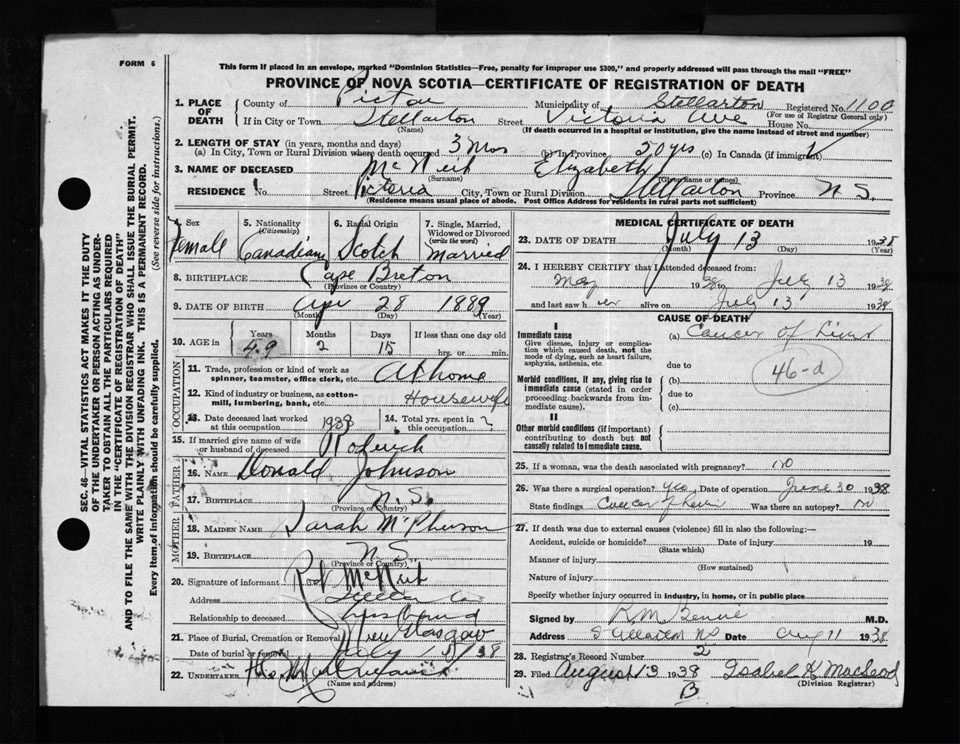 FORM 6
This form if placed in an envelope, marked "Dominion Statistics—Free, penalty for improper use $300," and properly addressed will pass through the mail "FREE"
PROVINCE OF NOVA SCOTIA—CERTIFICATE OF REGISTRATION OF DEATH
1. PLACE OF DEATH
County of Pictou Municipality of Stellarton Registered No. 1100
(For use of Registrar General only)
If in City or Town Stellarton Street Victoria Ave House No.
(Name) (If death occurred in a hospital or institution, give the name instead of street and number)
2. LENGTH OF STAY (in years, months and days)
(a) In City, Town or Rural Division where death occurred 3 mos (b) In Province 50 yrs (c) In Canada (if immigrant)
3. NAME OF DECEASED McNeil Elizabeth
(Surname) (Given name or names)
RESIDENCE Street Victoria City, Town or Rural Division Stellarton Province N.S.
(Residence means usual place of abode. Post Office Address for residents in rural parts not sufficient)
4. Sex Female
5. Nationality (Citizenship) Canadian
6. Racial Origin Scotch
7. Single, Married, Widowed or Divorced (write the word) Married
8. BIRTHPLACE Cape Breton
(Province or Country)
9. DATE OF BIRTH Apr 28 1889
(Month) (Day) (Year)
10. AGE in Years 49 Months 2 Days 15 If less than one day old hrs. or min.
OCCUPATION
11. Trade, profession or kind of work as spinner, teamster, office clerk, etc. At home
12. Kind of industry or business, as cotton-mill, lumbering, bank, etc. Housewife
13. Date deceased last worked at this occupation 1938
14. Total yrs. spent in this occupation ?
15. If married give name of wife or husband of deceased
FATHER
16. NAME Donald Johnson
17. BIRTHPLACE N.S.
(Province or Country)
MOTHER
18. MAIDEN NAME Sarah McPherson
19. BIRTHPLACE N.S.
(Province or Country)
20. Signature of informant McNeil
Address Stellarton
Relationship to deceased Husband
21. Place of Burial, Cremation or Removal New Glasgow
Date of burial or removal July 15/38
22. UNDERTAKER
(Name and address)
MEDICAL CERTIFICATE OF DEATH
23. DATE OF DEATH July 13 1938
(Month) (Day) (Year)
24. I HEREBY CERTIFY that I attended deceased from:
May 1938 to July 13 1938
and last saw her alive on July 13 1938
CAUSE OF DEATH
I
Immediate cause
Give disease, injury or complication which caused death, not the mode of dying, such as heart failure, asphyxia, asthenia, etc
(a) Cancer of Liver
due to
46-d
Morbid conditions, if any, giving rise to immediate cause (stated in order proceeding backwards from immediate cause).
(b)
due to
(c)
II
Other morbid conditions (if important) contributing to death but not causally related to immediate cause.
25. If a woman, was the death associated with pregnancy? no
26. Was there a surgical operation? yes Date of operation June 30 1938
State findings Cancer of Liver Was there an autopsy? no
27. If death was due to external causes (violence) fill in also the following:—
Accident, suicide or homicide? Date of injury 19
(State which)
Manner of injury
(How sustained)
Nature of injury
Specify whether injury occurred in Industry, in home, or in public place
Signed by R M Benvie M.D.
Address Stellarton NS Date Aug 11 1938
28. Registrar's Record Number 2
29. Filed August 13 1938 Isabel K. MacLeod
B (Division Registrar)
SEC. 46—VITAL STATISTICS ACT MAKES IT THE DUTY
OF THE UNDERTAKER OR PERSON ACTING AS UNDERTAKER TO OBTAIN ALL THE PARTICULARS REQUIRED
IN THE "CERTIFICATE OF REGISTRATION OF DEATH"
AND TO FILE THE SAME WITH THE DIVISION REGISTRAR WHO SHALL ISSUE THE BURIAL PERMIT.
WRITE PLAINLY WITH UNFADING INK. THIS IS A PERMANENT RECORD.
Every item of information should be carefully supplied. (See reverse side for instructions.)